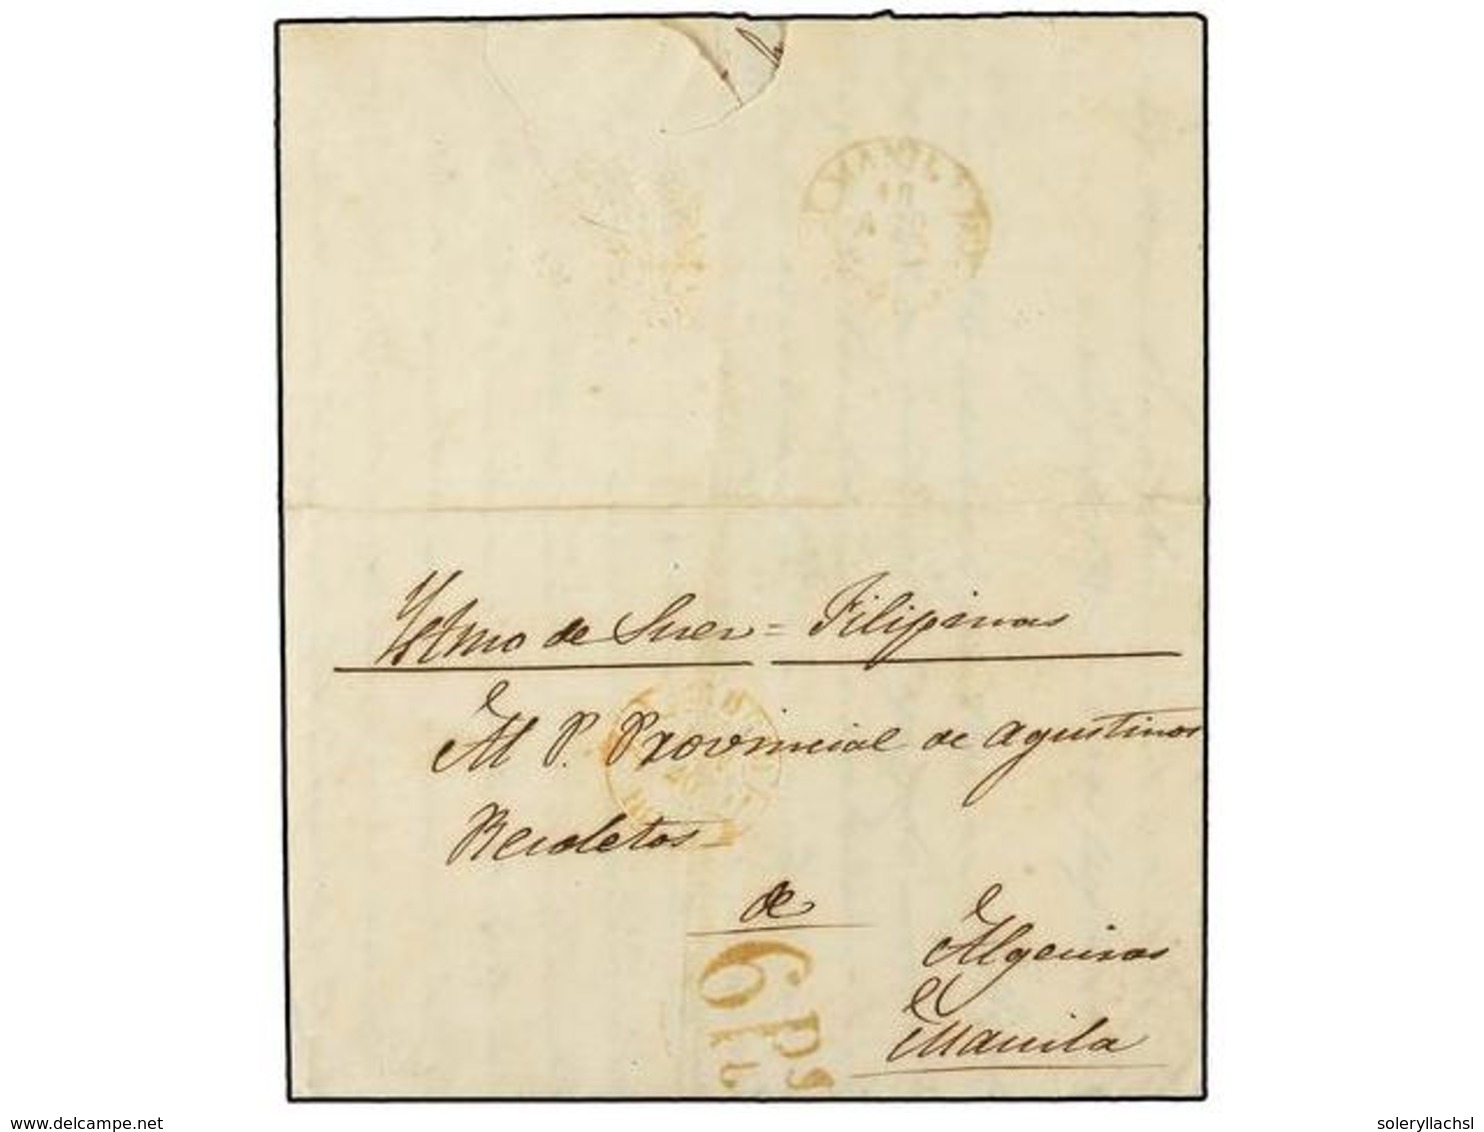 MANILA
18
AGO
Ystmo de Suez = Filipinas
Al P. Provincial de Agustinos
Recoletos
de
Algeciras
Manila
6 Ps
www.delcampe.net
soleryllachsl